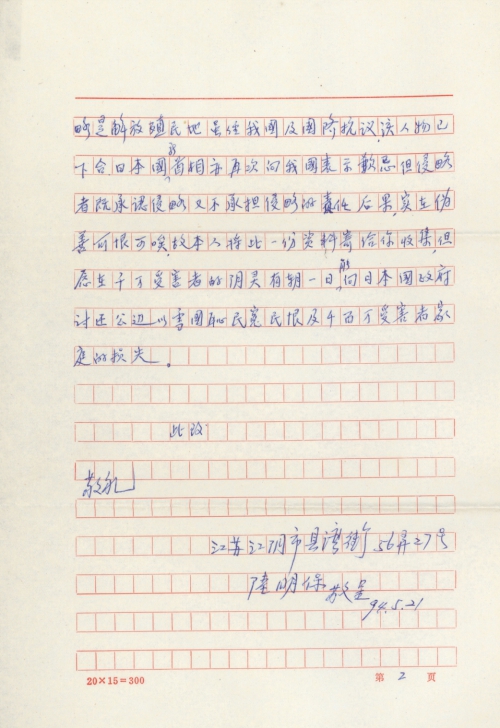 略是解放殖民地虽任我國及國际抗议,该人物已
下台日本國新首相亦再次向我國表示歉忌但侵略
者既承認侵略又不承担侵略的責任后果,实在伪
善可恨可唉,故本人将此一份资料寄给你收集,但
愿在千万受害者的阴灵有朝一日能向日本國政府
讨还公边以雪國恥民冤民恨及千百万受害者家
庭的损失。
此致
敬礼
江苏江阴市县湾街56弄27号
陸明保敬呈
94.5.21
20×15=300
第 2 页